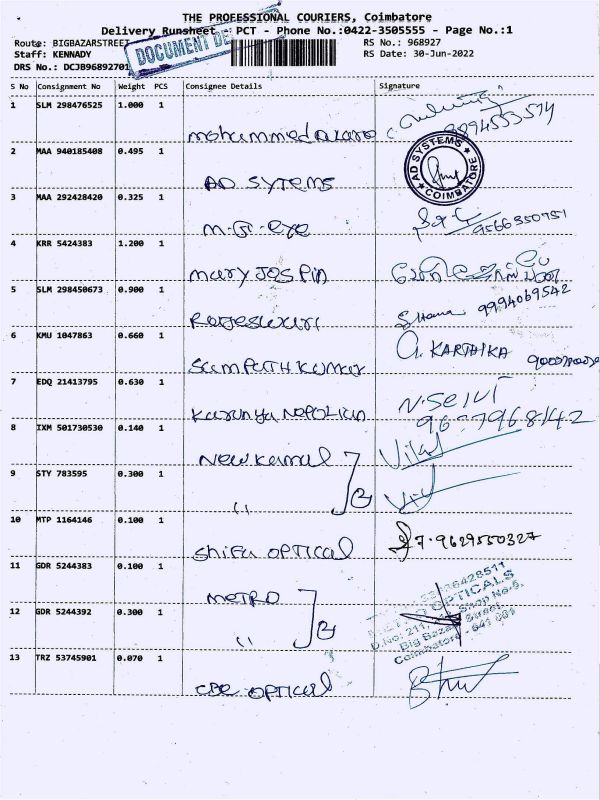 THE PROFESSIONAL COURIERS, Coimbatore
Delivery Runsheet - PCT - Phone No.:0422-3505555 - Page No.:1
Route: BIGBAZARSTREET
RS No.: 968927
Staff: KENNADY
RS Date: 30-Jun-2022
DRS No.: DCJB96892701
DOCUMENT DE
S No Consignment No Weight PCS Consignee Details Signature
1 SLM 298476525 1.000 1
mohammed 9994553514
2 MAA 940185408 0.495 1
AD SYTEMS
AD SYSTEMS COIMBATORE
3 MAA 292428420 0.325 1
M.G.eye 9566350951
4 KRR 5424383 1.200 1
mary JOSPIN
5 SLM 298450673 0.900 1
Rageswari 9994069542
6 KMU 1047863 0.660 1
SAMPATH KUMAR A. KARTHIKA
7 EDQ 21413795 0.630 1
Karunya NEPOLIAN N.SelVi
9677968142
8 IXM 501730530 0.140 1
New Kamal
9 STY 783595 0.300 1
"
10 MTP 1164146 0.100 1
Shifa OPTICAL 9629550327
11 GDR 5244383 0.100 1
METRO
12 GDR 5244392 0.300 1
"
METRO OPTICALS
D.No: 211, Shop No-5,
Big Bazaar Street,
Coimbatore - 641 001
13 TRZ 53745901 0.070 1
CBE OPTICAL